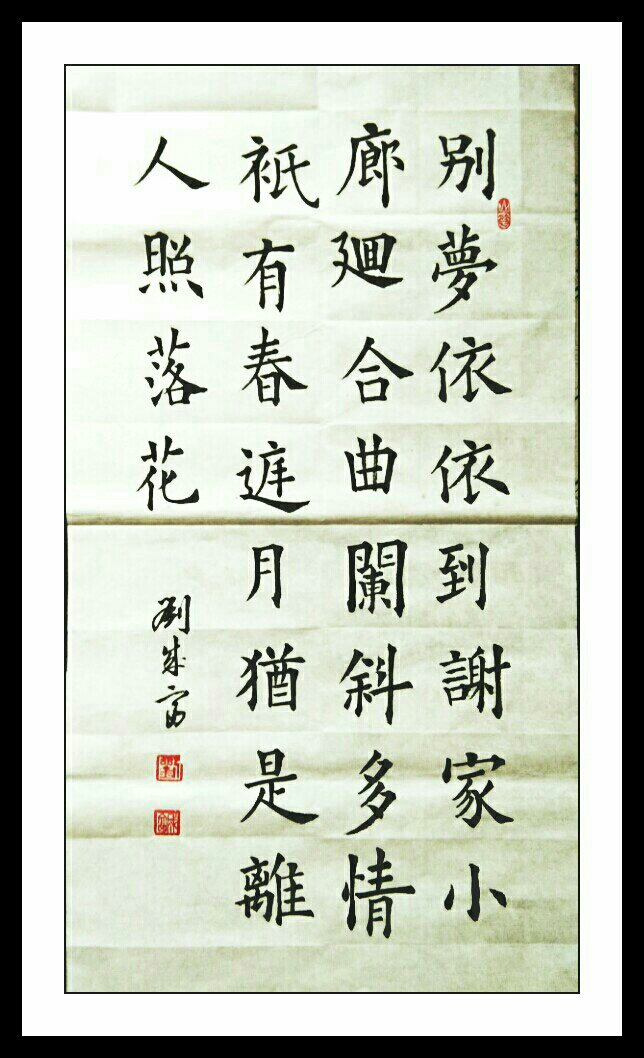 别夢依依到謝家小
廊廻合曲闌斜多情
祇有春庭月猶是離
人照落花
劉成富